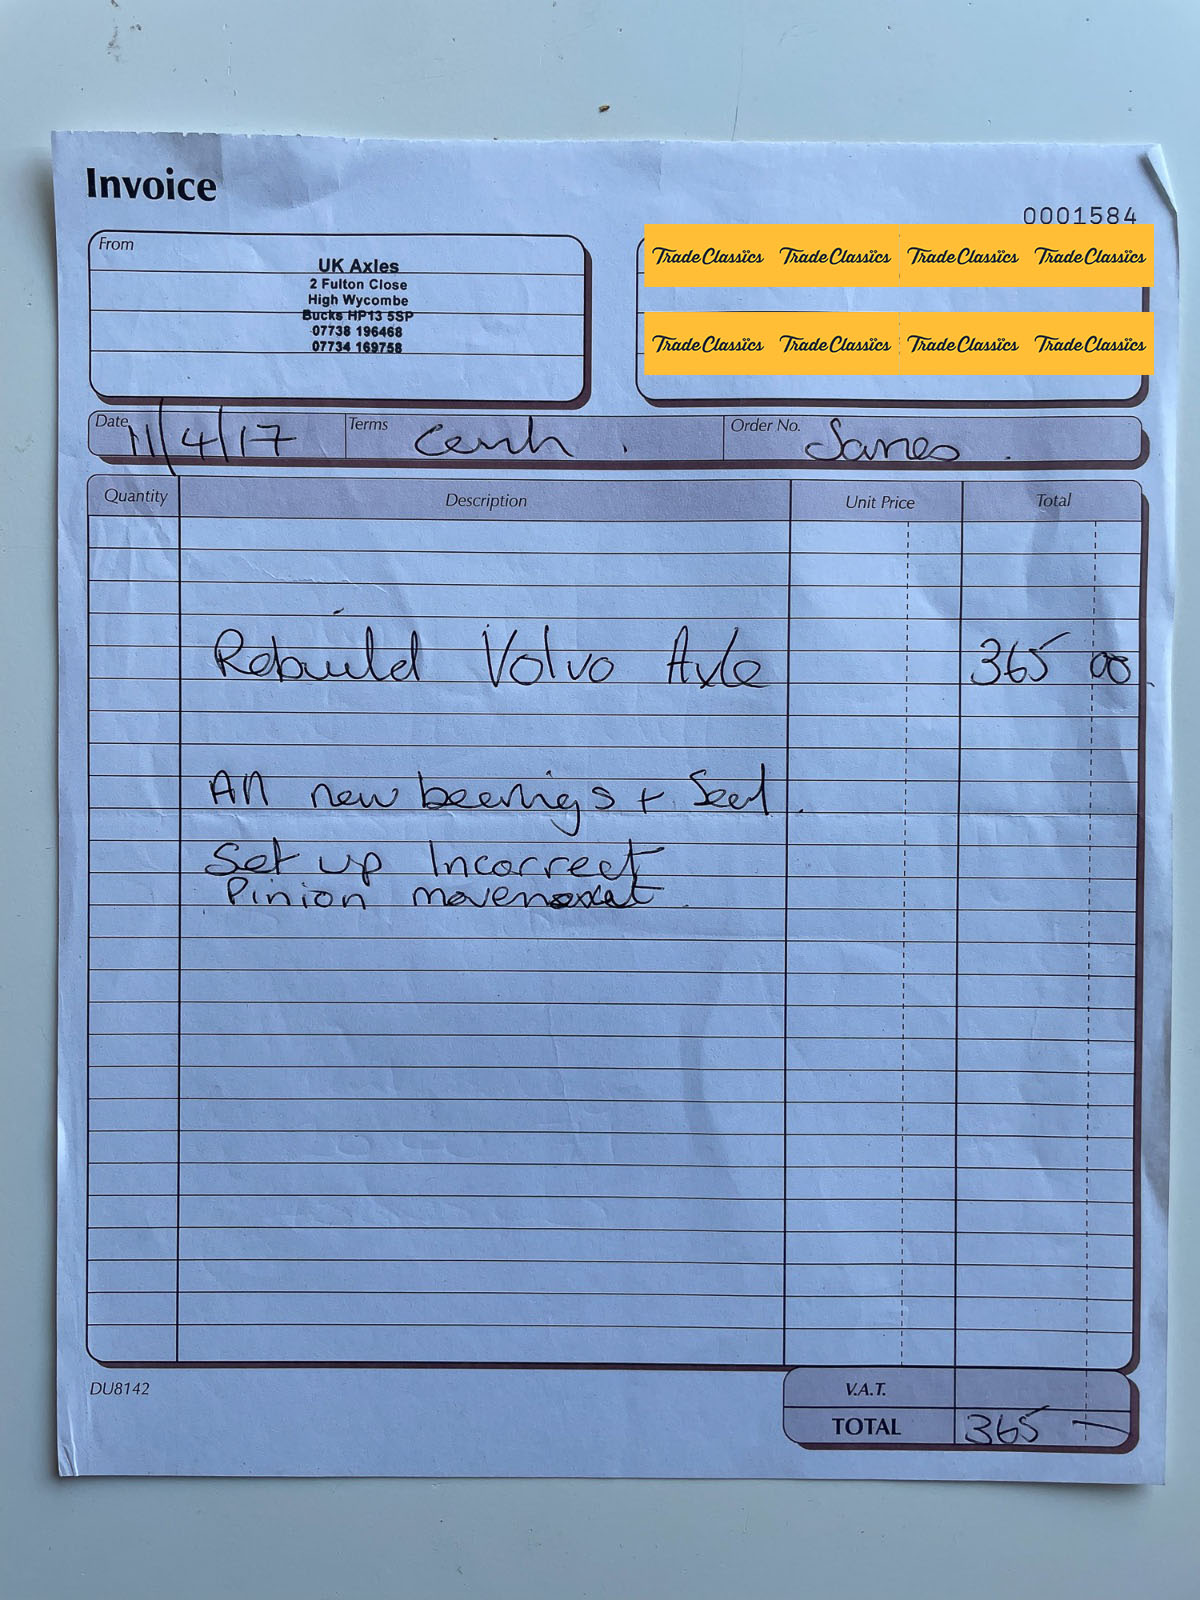 Invoice
0001584
From
UK Axles
2 Fulton Close
High Wycombe
Bucks HP13 5SP
07738 196468
07734 169758
Trade Classics Trade Classics Trade Classics Trade Classics
Trade Classics Trade Classics Trade Classics Trade Classics
Date 11/4/17 Terms Cash . Order No. James .
Quantity Description Unit Price Total
Rebuild Volvo Axle 365 00
All new bearings + Seal .
Set up Incorrect
Pinion movement .
DU8142
V.A.T.
TOTAL 365 —